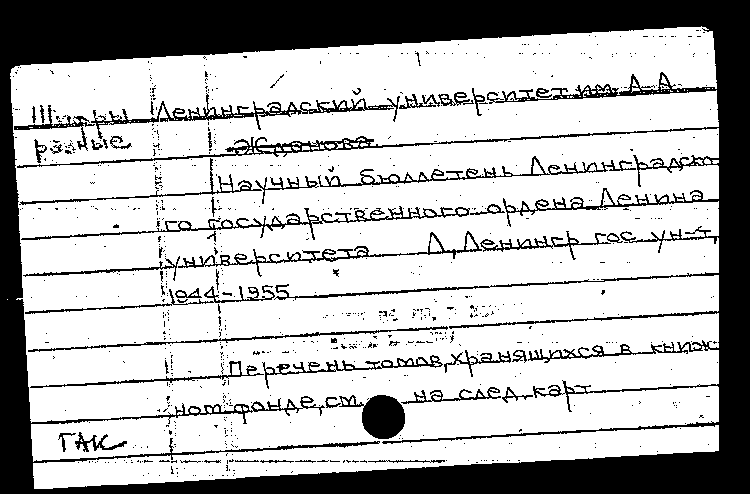 Шифры Ленинградский университет им. А. А.
разные Жданова.
Научный бюллетень Ленинградско
го государственного ордена Ленина
университета Л., Ленингр гос ун-т,
1944-1955
Перечень томов, хранящихся в книж
ном фонде, см. на след. карт
ГАК